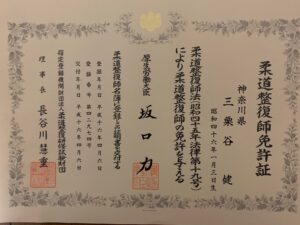 柔道整復師免許証
神奈川県
三栗谷 健
昭和四十六年一月三日生
柔道整復師法(昭和四十五年法律第十九号)
により柔道整復師の免許を与える
厚生労働大臣 坂口 力
柔道整復師名簿に登録し此証書を交付する
登録年月日 平成十六年四月六日
登録番号 第四二九七四号
交付年月日 平成十六年四月六日
指定登録機関財団法人柔道整復研修試験財団
理事長 長谷川慧重